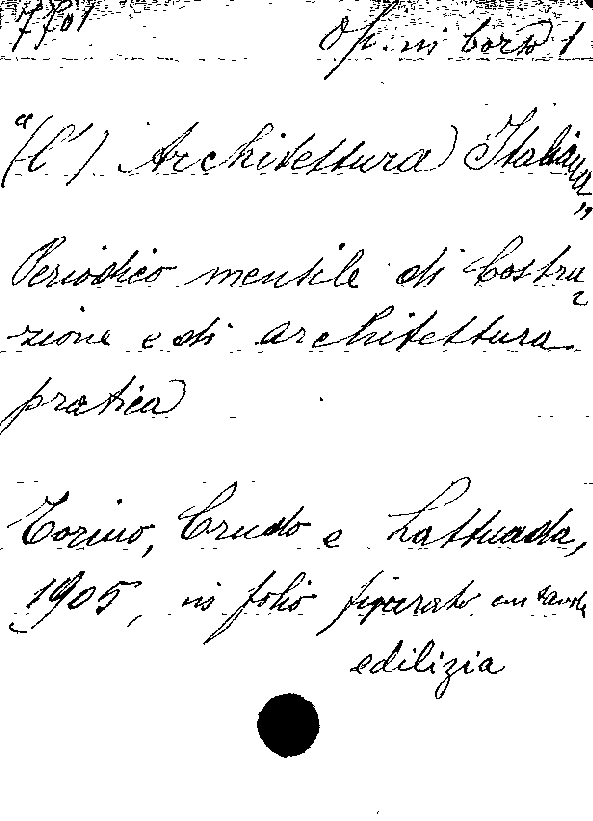 7701
Op. in corso 1
"(L') Architettura Italiana"
Periodico mensile di Costru-
zione e di architettura
pratica
Torino, Crudo e Lattuada,
1905, in folio figurato con tavole
edilizia